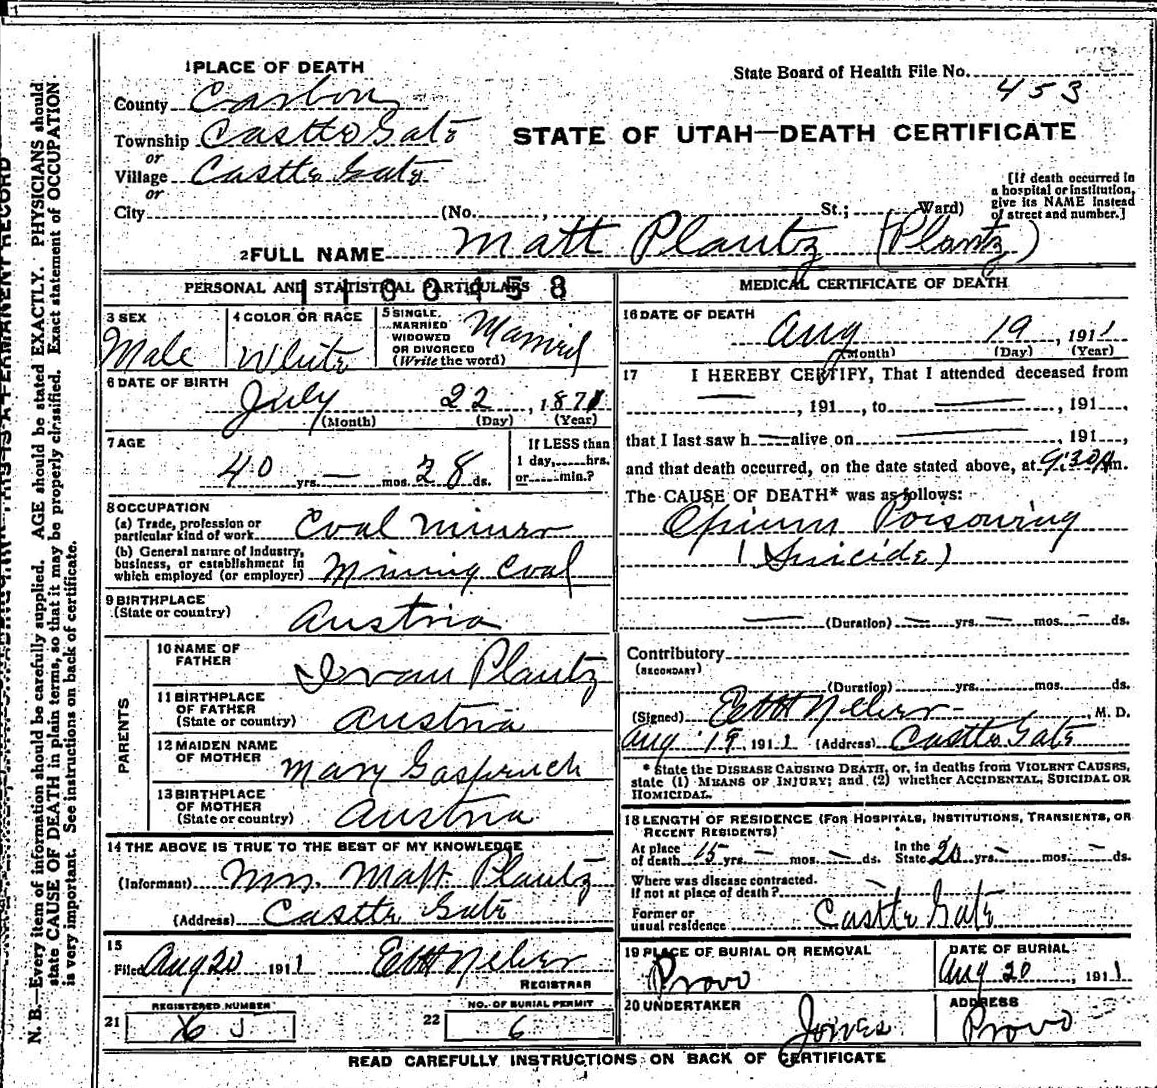 1 PLACE OF DEATH
County Carbon
Township Castle Gate
or
Village Castle Gate
or
City (No. , St.; Ward)
State Board of Health File No. 453
STATE OF UTAH—DEATH CERTIFICATE
[If death occurred in
a hospital or institution,
give its NAME instead
of street and number.]
2 FULL NAME Matt Plautz (Plantz)
PERSONAL AND STATISTICAL PARTICULARS
1100458
3 SEX
Male
4 COLOR OR RACE
White
5 SINGLE,
MARRIED
WIDOWED
OR DIVORCED
(Write the word)
Married
6 DATE OF BIRTH
July 22, 1871
(Month) (Day) (Year)
7 AGE
40 yrs. — mos. 28 ds.
If LESS than
1 day, hrs.
or min.?
8 OCCUPATION
(a) Trade, profession or
particular kind of work Coal Miner
(b) General nature of Industry,
business, or establishment in
which employed (or employer) Mining Coal
9 BIRTHPLACE
(State or country) Austria
PARENTS
10 NAME OF
FATHER Ivan Plautz
11 BIRTHPLACE
OF FATHER
(State or country) Austria
12 MAIDEN NAME
OF MOTHER Mary
13 BIRTHPLACE
OF MOTHER
(State or country) Austria
14 THE ABOVE IS TRUE TO THE BEST OF MY KNOWLEDGE
(Informant) Mrs. Matt Plautz
(Address) Castle Gate
15
Filed Aug 20 1911
REGISTRAR
REGISTERED NUMBER
21
NO. OF BURIAL PERMIT
22 6
MEDICAL CERTIFICATE OF DEATH
16 DATE OF DEATH
Aug 19, 1911
(Month) (Day) (Year)
17 I HEREBY CERTIFY, That I attended deceased from
—, 191, to —, 191,
that I last saw h — alive on —, 191,
and that death occurred, on the date stated above, at 9:30 A m.
The CAUSE OF DEATH* was as follows:
Opium Poisoning
(Suicide)
— (Duration) — yrs. — mos. - ds.
Contributory
(SECONDARY)
(Duration) yrs. mos. ds.
(Signed) M. D.
Aug 19 1911 (Address) Castle Gate
* State the DISEASE CAUSING DEATH, or, in deaths from VIOLENT CAUSES,
state (1) MEANS OF INJURY; and (2) whether ACCIDENTAL, SUICIDAL OR
HOMICIDAL.
18 LENGTH OF RESIDENCE (FOR HOSPITALS, INSTITUTIONS, TRANSIENTS, OR
RECENT RESIDENTS)
At place
of death 15 yrs. — mos. — ds.
In the
State 20 yrs. — mos. — ds.
Where was disease contracted.
If not at place of death? —
Former or
usual residence Castle Gate
19 PLACE OF BURIAL OR REMOVAL
Provo
DATE OF BURIAL
Aug 20, 1911
20 UNDERTAKER
Jones
ADDRESS
Provo
READ CAREFULLY INSTRUCTIONS ON BACK OF CERTIFICATE
N. B.—Every item of information should be carefully supplied. AGE should be stated EXACTLY. PHYSICIANS should
state CAUSE OF DEATH in plain terms, so that it may be properly classified. Exact statement of OCCUPATION
is very important. See instructions on back of certificate.